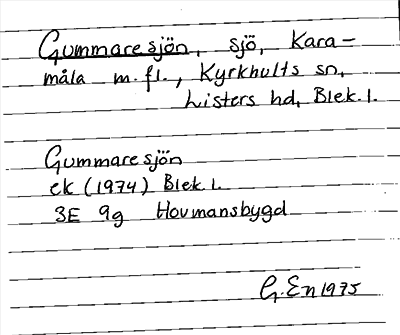 Gummaresjön, sjö, Kara-
måla m.fl., Kyrkhults sn,
Listers hd, Blek.l.
Gummaresjön
ek (1974) Blek.l.
3E 9g Hovmansbygd
G.En 1975